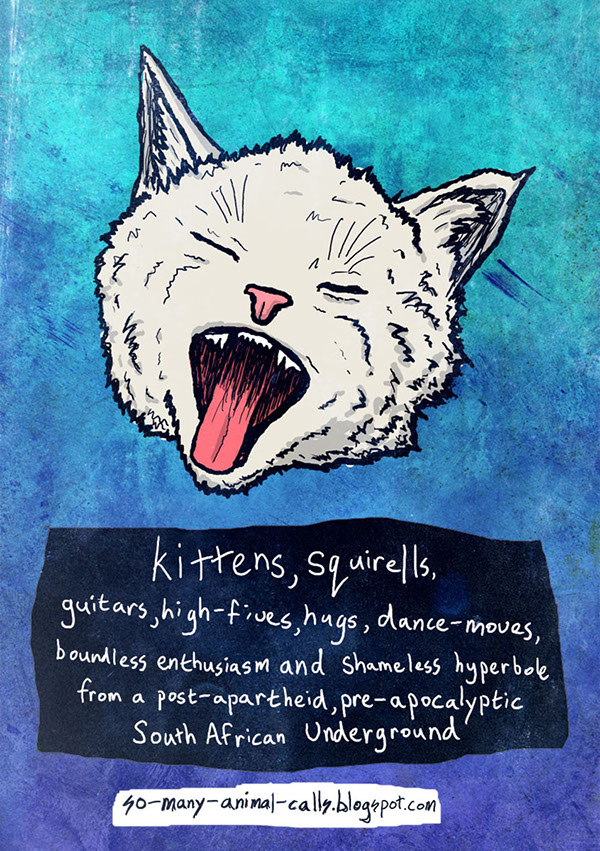 kittens, squirells,
guitars, high-fives, hugs, dance-moves,
boundless enthusiasm and shameless hyperbole
from a post-apartheid, pre-apocalyptic
South African Underground
so-many-animal-calls.blogspot.com